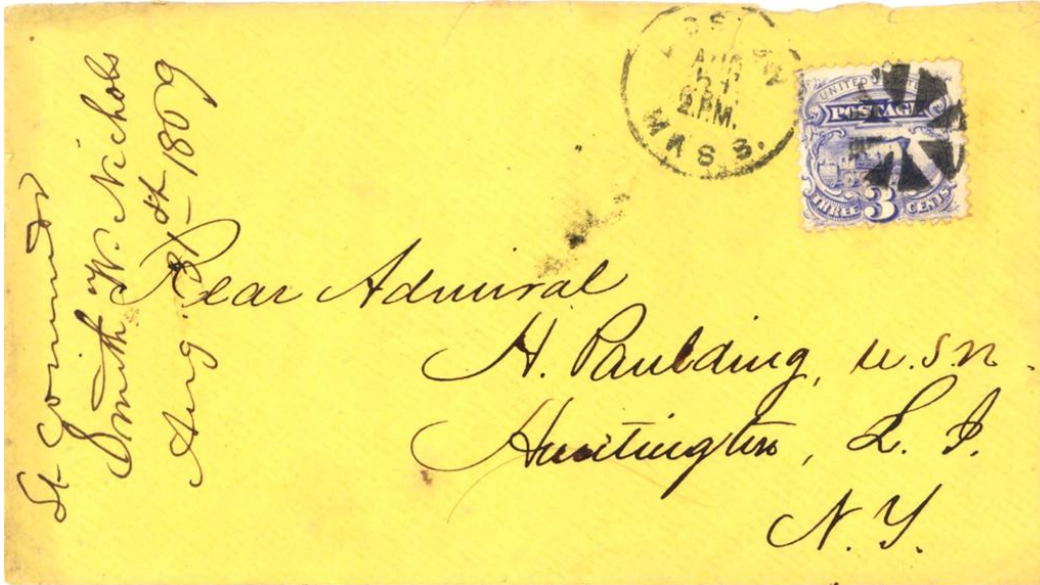 Lt Commander
Smith W. Nichols
Aug 31st 1869
BOSTON
AUG
2 P.M.
MASS.
UNITED STATES
POSTAGE
THREE 3 CENTS
Rear Admiral
H. Paulding, U.S.N.
Huntington, L. I.
N. Y.